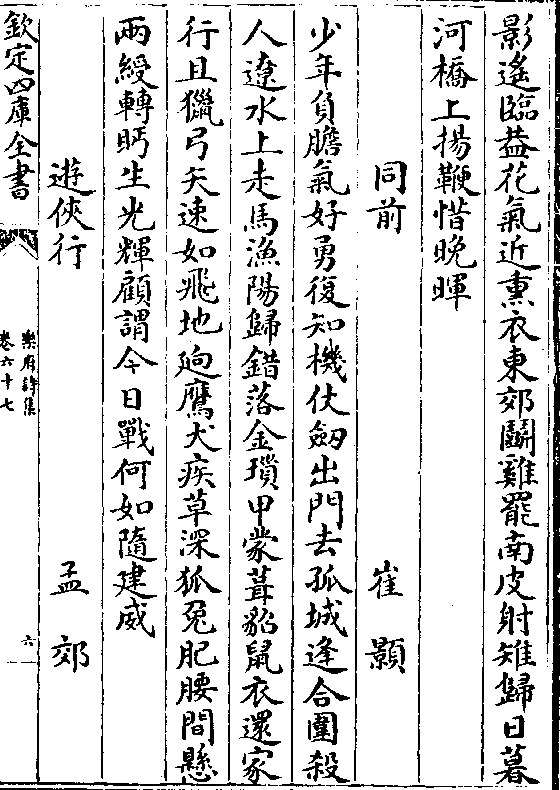 影遙臨蓋花氣近薰衣東郊鬭雞罷南皮射雉歸日暮
河橋上揚鞭惜晚暉
同前 崔顥
少年負膽氣好勇復知機仗劒出門去孤城逢合圍殺
人遼水上走馬漁陽歸錯落金瑣甲蒙茸貂鼠衣還家
行且獵弓矢速如飛地逈鷹犬疾草深狐兔肥腰間懸
兩綬轉眄生光輝顧謂今日戰何如隨建威
遊俠行 孟郊
欽定四庫全書
樂府詩集
卷六十七
六